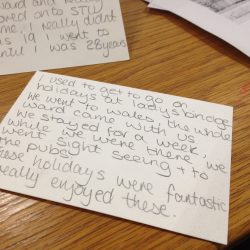 ward and really
moved onto St
me. I really didnt
as 19 I went to
until I was 28 years
I used to get to go on
holidays at ladysbridge
We went to wales, the whole
ward came with us
We stayed for a week,
while we were there we
went sight seeing + to
the pubs
those holidays were fantastic
really enjoyed these.